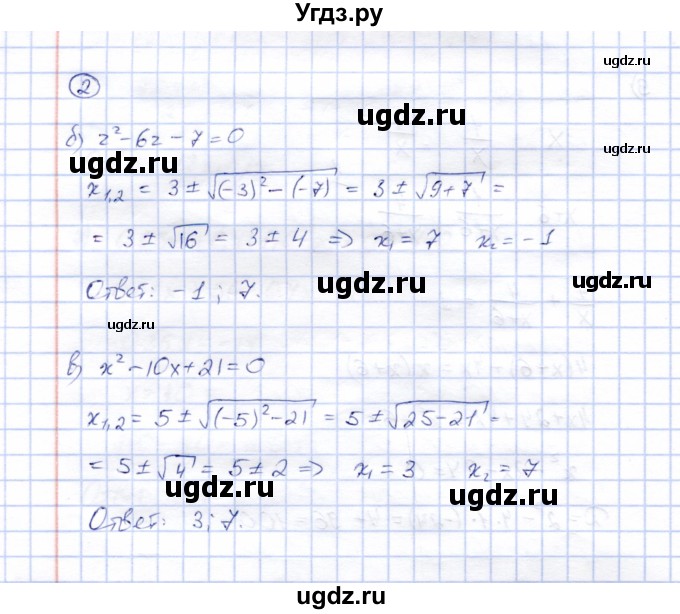 Угдз.ру
ugdz.ru
2
ugdz.ru
б) z² - 6z - 7 = 0
ugdz.ru
x₁,₂ = 3 ± √((-3)² - (-7)) = 3 ± √(9+7) =
= 3 ± √16 = 3 ± 4 => x₁ = 7 x₂ = -1
ugdz.ru
Ответ: -1; 7.
ugdz.ru
ugdz.ru
ugdz.ru
в) x² - 10x + 21 = 0
x₁,₂ = 5 ± √((-5)² - 21) = 5 ± √(25 - 21) =
= 5 ± √4 = 5 ± 2 => x₁ = 3 x₂ = 7
ugdz.ru
ugdz.ru
Ответ: 3; 7.
ugdz.ru